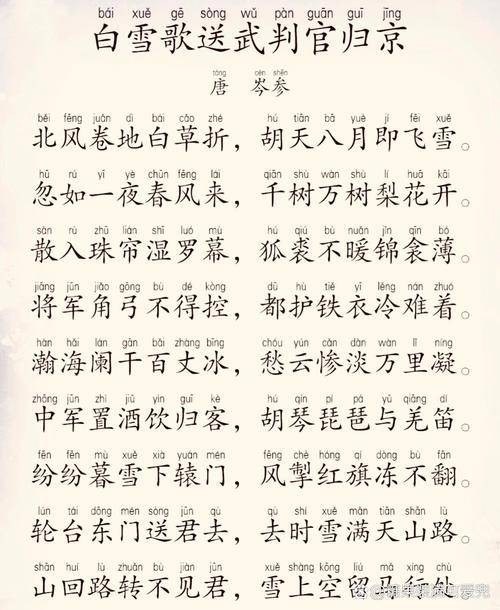 bái xuě gē sòng wǔ pàn guān guī jīng
白雪歌送武判官归京
táng cén shēn
唐 岑参
běi fēng juǎn dì bái cǎo zhé hú tiān bā yuè jí fēi xuě
北风卷地白草折，胡天八月即飞雪。
hū rú yī yè chūn fēng lái qiān shù wàn shù lí huā kāi
忽如一夜春风来，千树万树梨花开。
sàn rù zhū lián shī luó mù hú qiú bù nuǎn jǐn qīn bó
散入珠帘湿罗幕，狐裘不暖锦衾薄。
jiāng jūn jiǎo gōng bù dé kòng dū hù tiě yī lěng nán zhuó
将军角弓不得控，都护铁衣冷难着。
hàn hǎi lán gān bǎi zhàng bīng chóu yún cǎn dàn wàn lǐ níng
瀚海阑干百丈冰，愁云惨淡万里凝。
zhōng jūn zhì jiǔ yǐn guī kè hú qín pí pá yǔ qiāng dí
中军置酒饮归客，胡琴琵琶与羌笛。
fēn fēn mù xuě xià yuán mén fēng chè hóng qí dòng bù fān
纷纷暮雪下辕门，风掣红旗冻不翻。
lún tái dōng mén sòng jūn qù qù shí xuě mǎn tiān shān lù
轮台东门送君去，去时雪满天山路。
shān huí lù zhuǎn bù jiàn jūn xuě shàng kōng liú mǎ xíng chù
山回路转不见君，雪上空留马行处